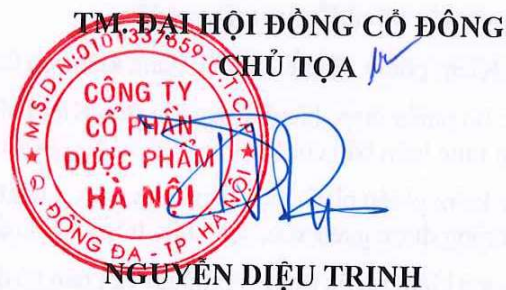 TM. ĐẠI HỘI ĐỒNG CỔ ĐÔNG
CHỦ TỌA
M.S.D.N:0101337659-C.T.C.P
CÔNG TY
CỔ PHẦN
DƯỢC PHẨM
HÀ NỘI
Q ĐỐNG ĐA - TP. HÀ NỘI
NGUYỄN DIỆU TRINH